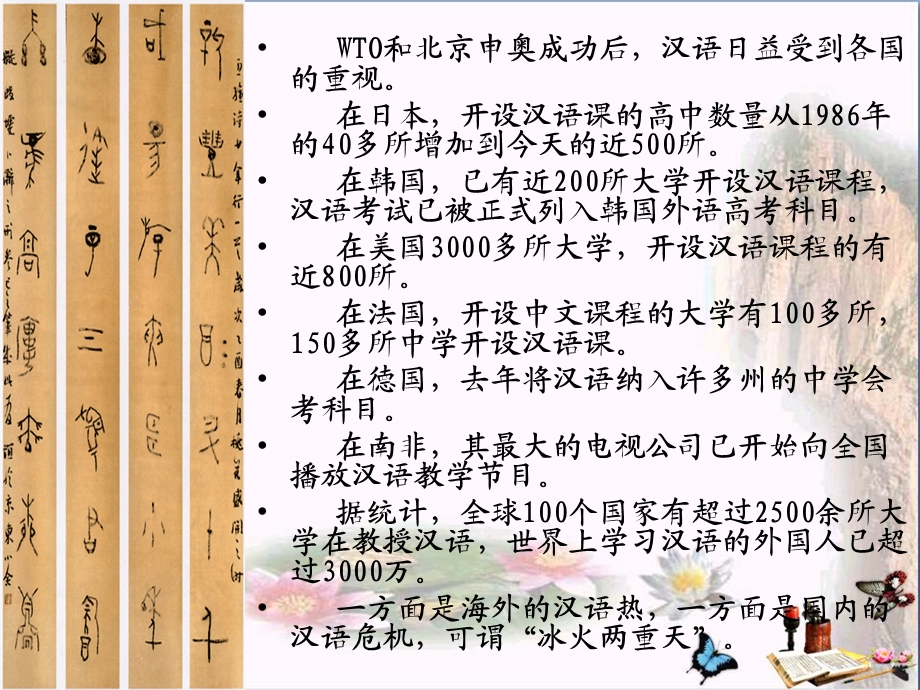 • WTO和北京申奥成功后，汉语日益受到各国
的重视。
• 在日本，开设汉语课的高中数量从1986年
的40多所增加到今天的近500所。
• 在韩国，已有近200所大学开设汉语课程，
汉语考试已被正式列入韩国外语高考科目。
• 在美国3000多所大学，开设汉语课程的有
近800所。
• 在法国，开设中文课程的大学有100多所，
150多所中学开设汉语课。
• 在德国，去年将汉语纳入许多州的中学会
考科目。
• 在南非，其最大的电视公司已开始向全国
播放汉语教学节目。
• 据统计，全球100个国家有超过2500余所大
学在教授汉语，世界上学习汉语的外国人已超
过3000万。
• 一方面是海外的汉语热，一方面是国内的
汉语危机，可谓“冰火两重天”。